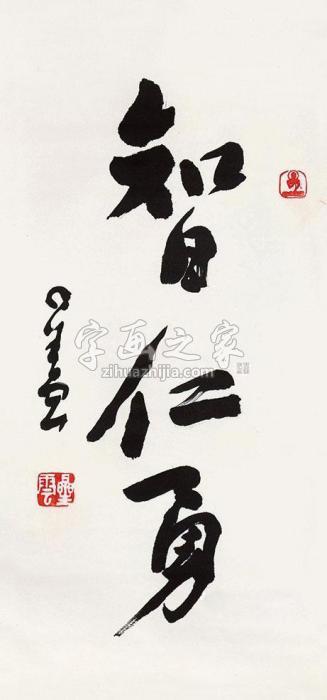 智仁勇
星雲
星雲
字画之家
zihuazhijia.com